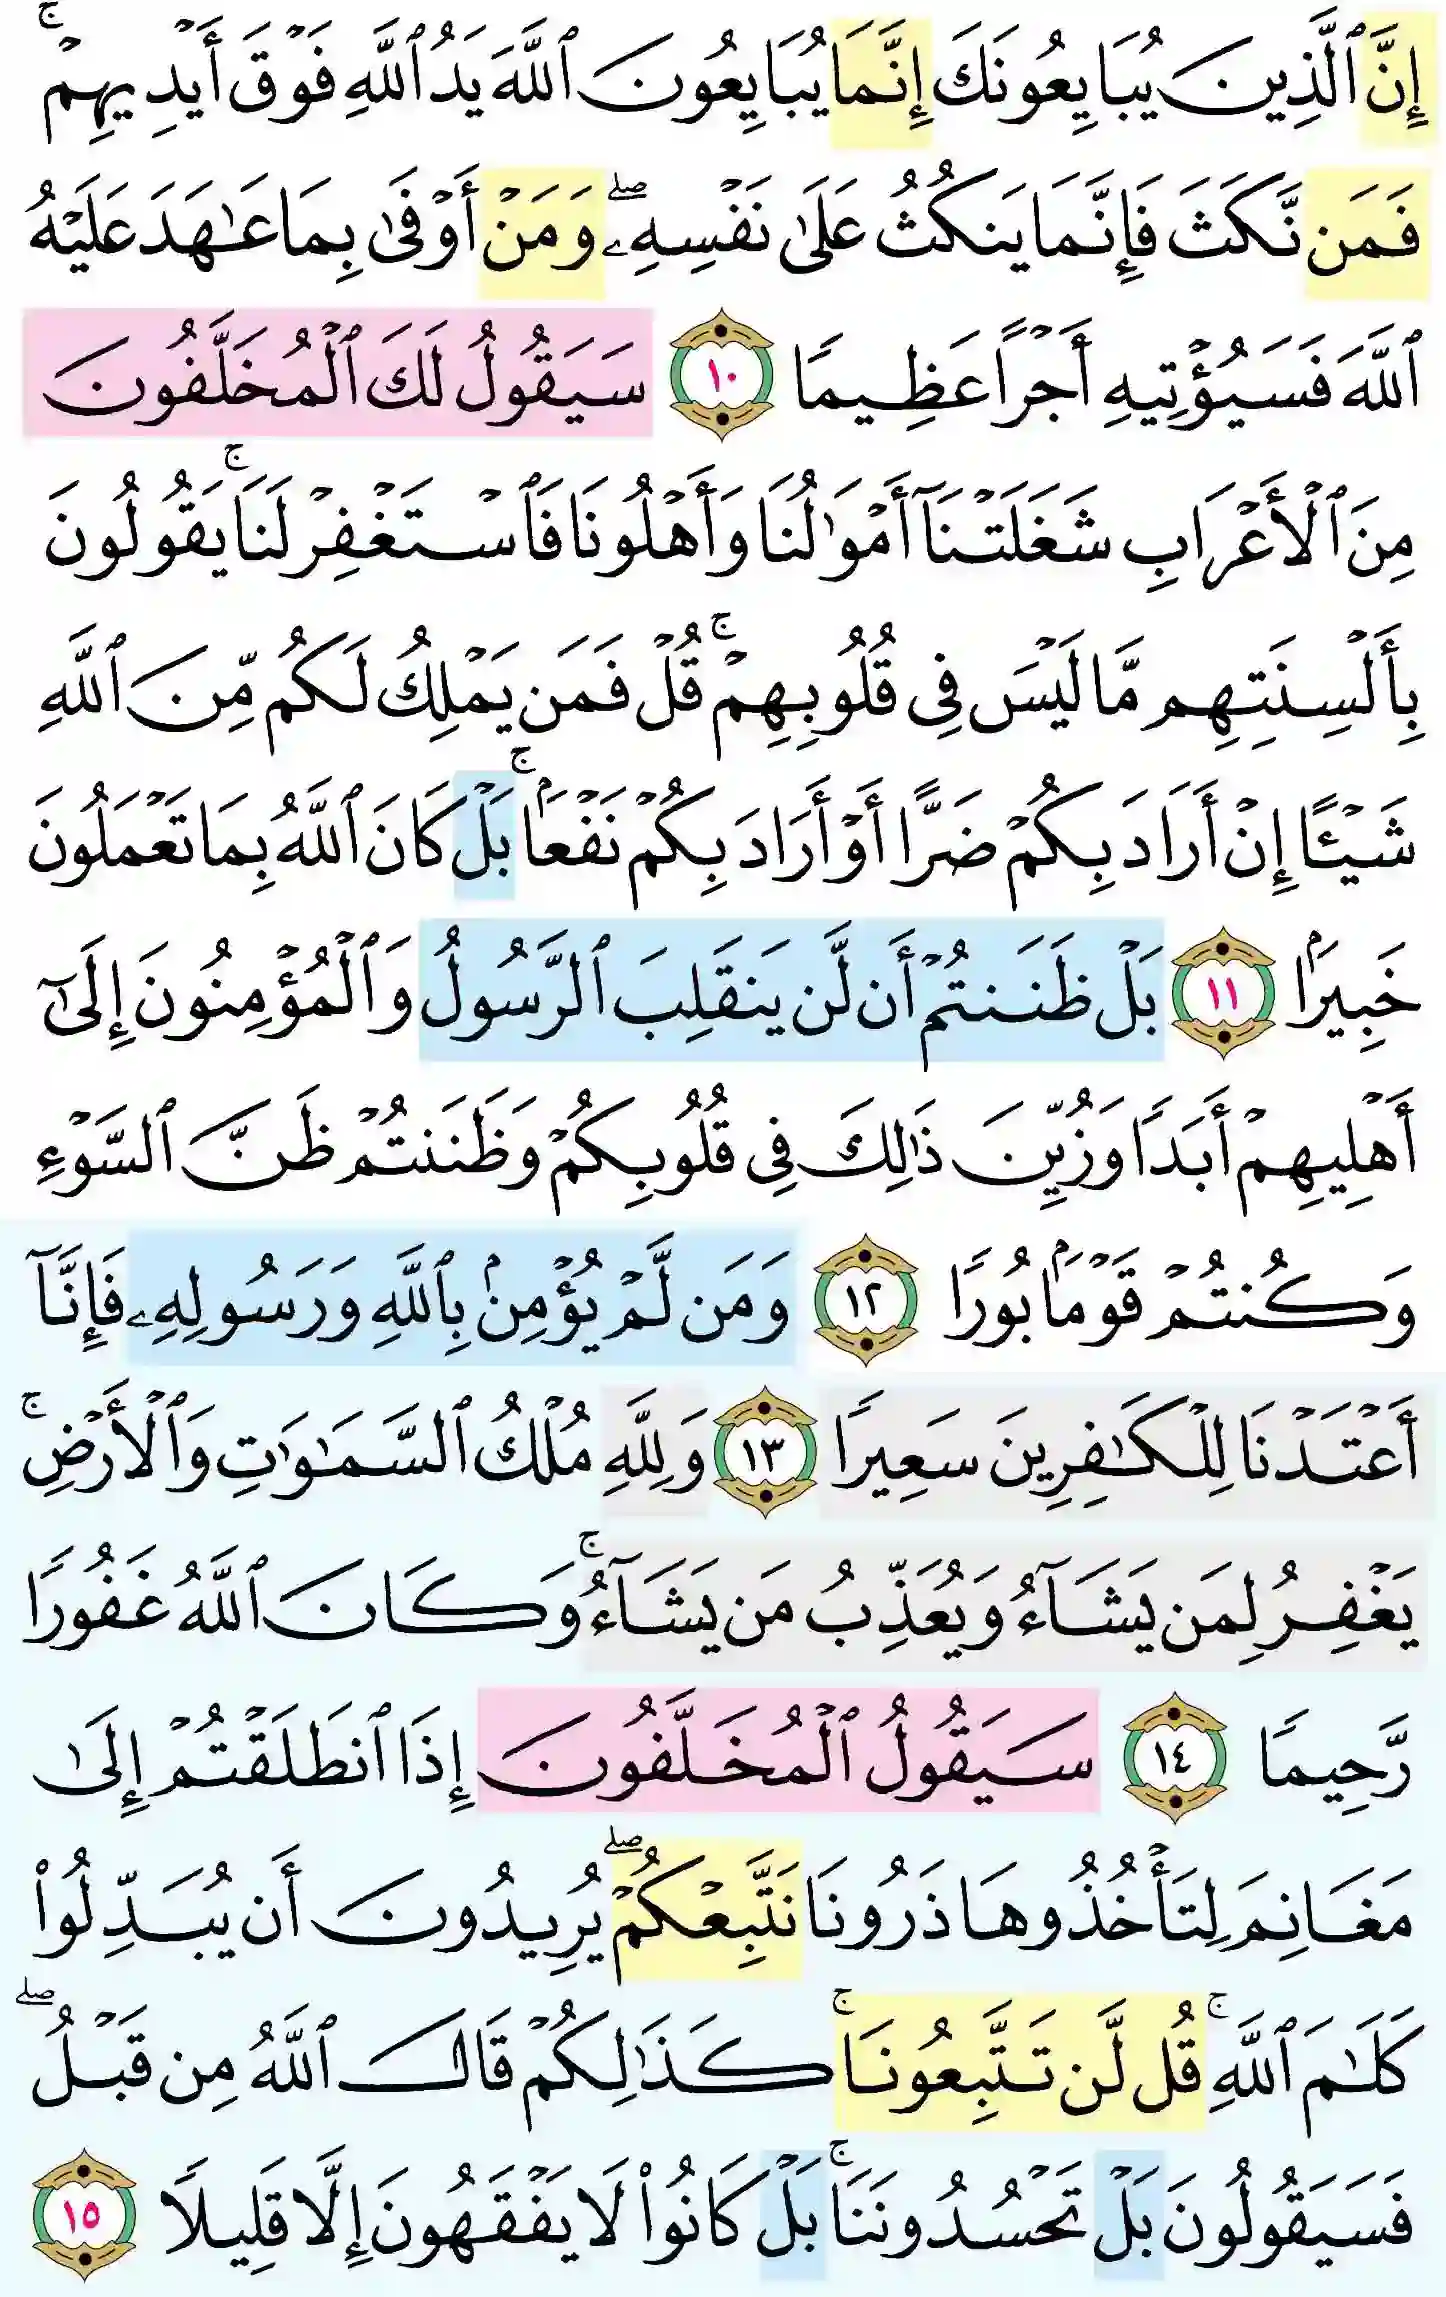 إِنَّ ٱلَّذِينَ يُبَايِعُونَكَ إِنَّمَا يُبَايِعُونَ ٱللَّهَ يَدُ ٱللَّهِ فَوْقَ أَيْدِيهِمْۚ
فَمَن نَّكَثَ فَإِنَّمَا يَنكُثُ عَلَىٰ نَفْسِهِۦۖ وَمَنْ أَوْفَىٰ بِمَا عَٰهَدَ عَلَيْهُ
ٱللَّهَ فَسَيُؤْتِيهِ أَجْرًا عَظِيمًا ١٠ سَيَقُولُ لَكَ ٱلْمُخَلَّفُونَ
مِنَ ٱلْأَعْرَابِ شَغَلَتْنَآ أَمْوَٰلُنَا وَأَهْلُونَا فَٱسْتَغْفِرْ لَنَاۚ يَقُولُونَ
بِأَلْسِنَتِهِم مَّا لَيْسَ فِى قُلُوبِهِمْۚ قُلْ فَمَن يَمْلِكُ لَكُم مِّنَ ٱللَّهِ
شَيْـًٔا إِنْ أَرَادَ بِكُمْ ضَرًّا أَوْ أَرَادَ بِكُمْ نَفْعَۢاۚ بَلْ كَانَ ٱللَّهُ بِمَا تَعْمَلُونَ
خَبِيرَۢا ١١ بَلْ ظَنَنتُمْ أَن لَّن يَنقَلِبَ ٱلرَّسُولُ وَٱلْمُؤْمِنُونَ إِلَىٰٓ
أَهْلِيهِمْ أَبَدًا وَزُيِّنَ ذَٰلِكَ فِى قُلُوبِكُمْ وَظَنَنتُمْ ظَنَّ ٱلسَّوْءِ
وَكُنتُمْ قَوْمَۢا بُورًا ١٢ وَمَن لَّمْ يُؤْمِنۢ بِٱللَّهِ وَرَسُولِهِۦ فَإِنَّآ
أَعْتَدْنَا لِلْكَٰفِرِينَ سَعِيرًا ١٣ وَلِلَّهِ مُلْكُ ٱلسَّمَٰوَٰتِ وَٱلْأَرْضِۚ
يَغْفِرُ لِمَن يَشَآءُ وَيُعَذِّبُ مَن يَشَآءُۚ وَكَانَ ٱللَّهُ غَفُورًا
رَّحِيمًا ١٤ سَيَقُولُ ٱلْمُخَلَّفُونَ إِذَا ٱنطَلَقْتُمْ إِلَىٰ
مَغَانِمَ لِتَأْخُذُوهَا ذَرُونَا نَتَّبِعْكُمْۖ يُرِيدُونَ أَن يُبَدِّلُوا۟
كَلَٰمَ ٱللَّهِۚ قُل لَّن تَتَّبِعُونَاۚ كَذَٰلِكُمْ قَالَ ٱللَّهُ مِن قَبْلُۖ
فَسَيَقُولُونَ بَلْ تَحْسُدُونَنَاۚ بَلْ كَانُوا۟ لَا يَفْقَهُونَ إِلَّا قَلِيلًا ١٥